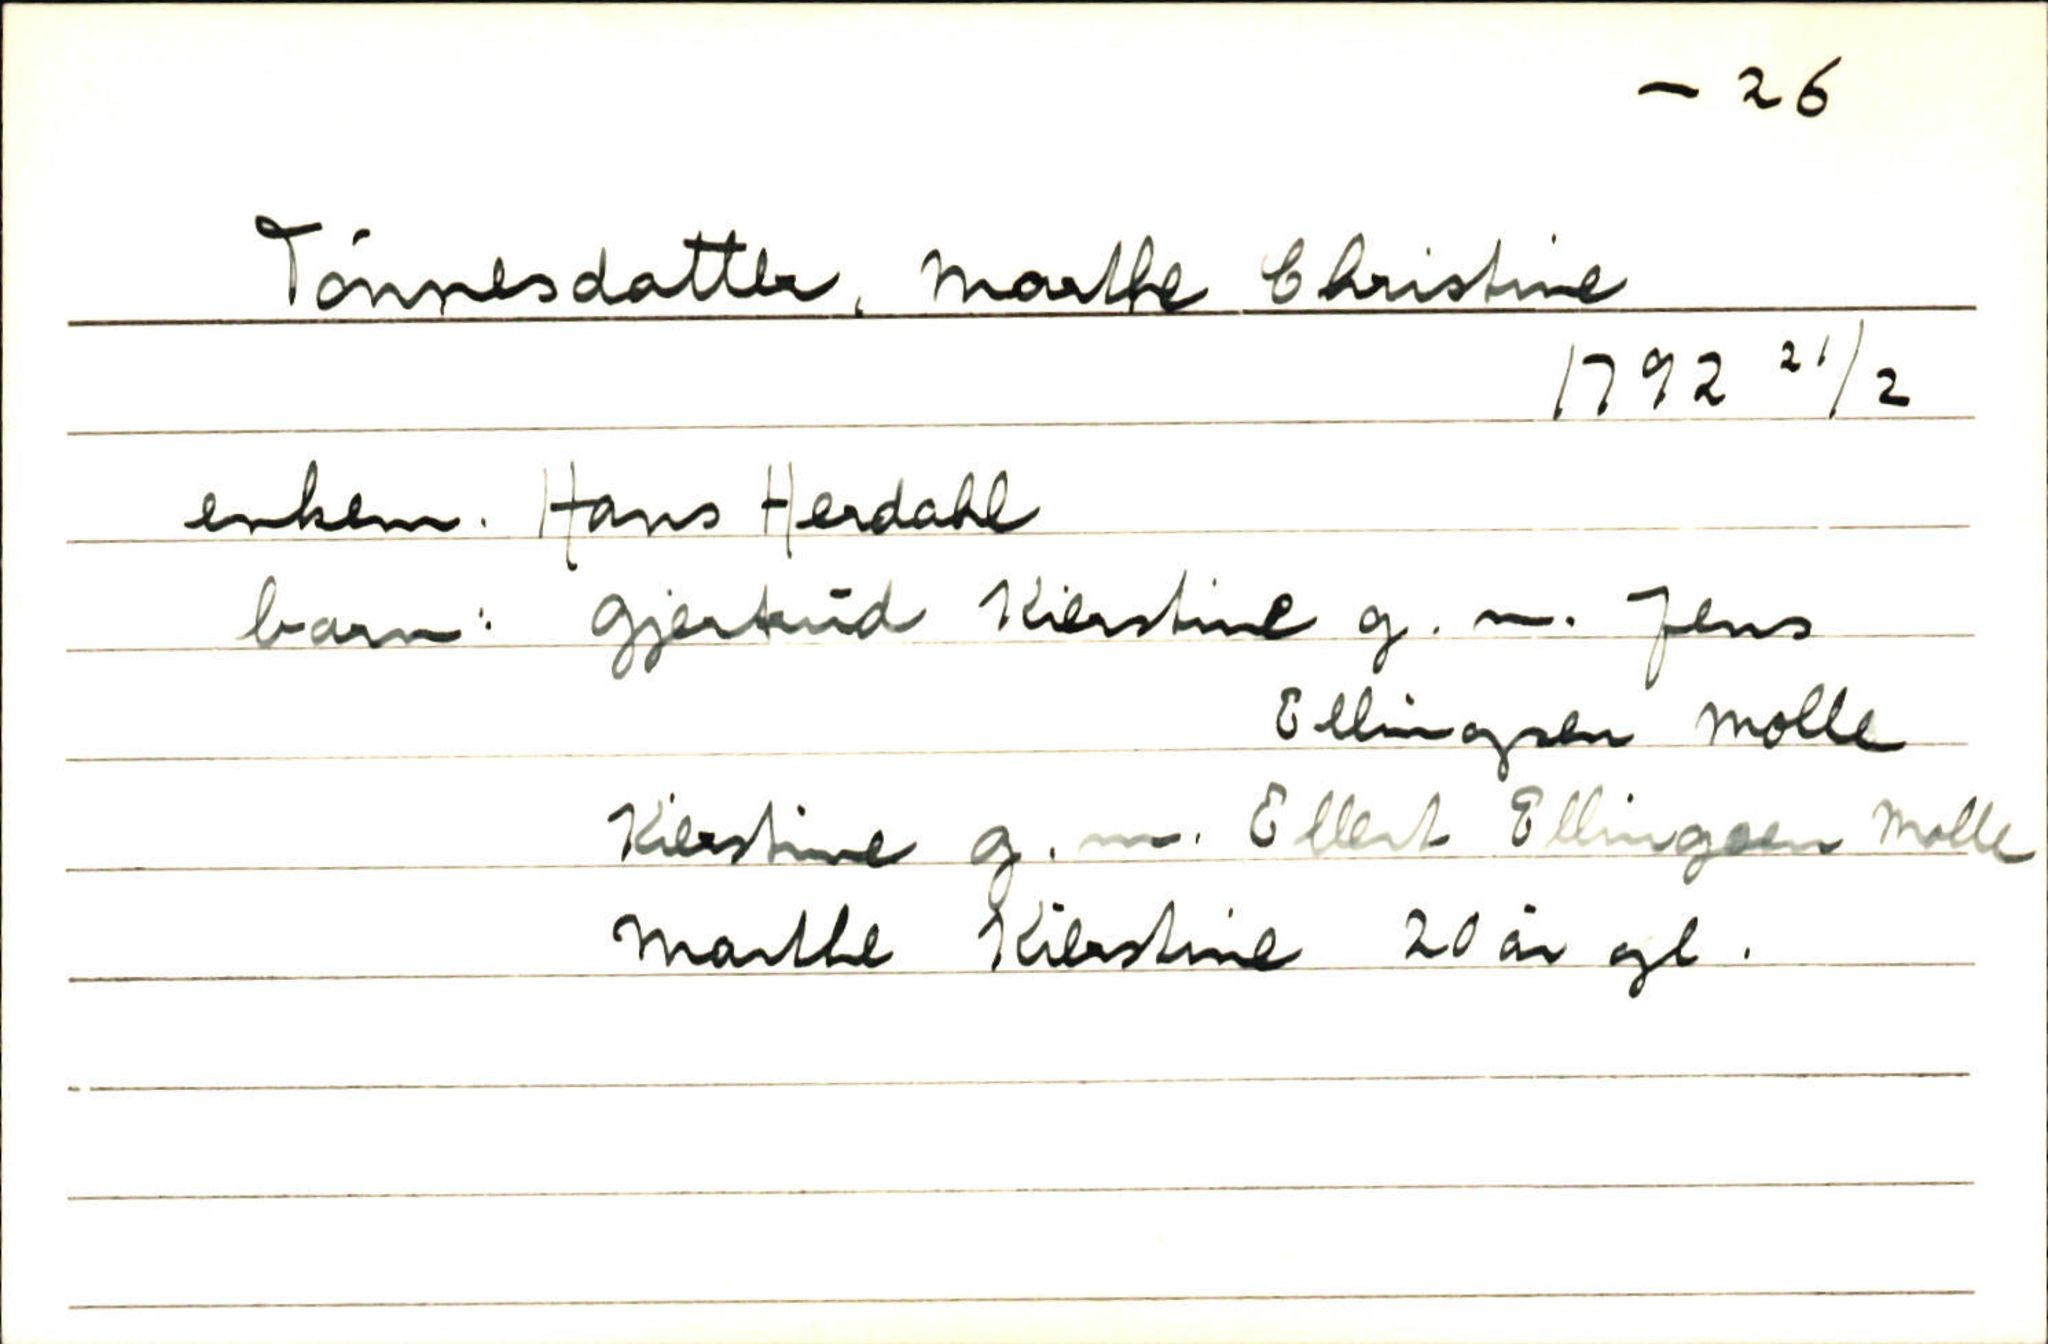 - 26
Tónnesdatter, Marthe Christine
1792 21/2
enkem. Hans Herdahl
barn: Gjertrud Kierstine g. m. Jens
Ellingsen Molle
Kierstine g. m. Ellert Ellingsen Molle
Marthe Kierstine 20 år gl.